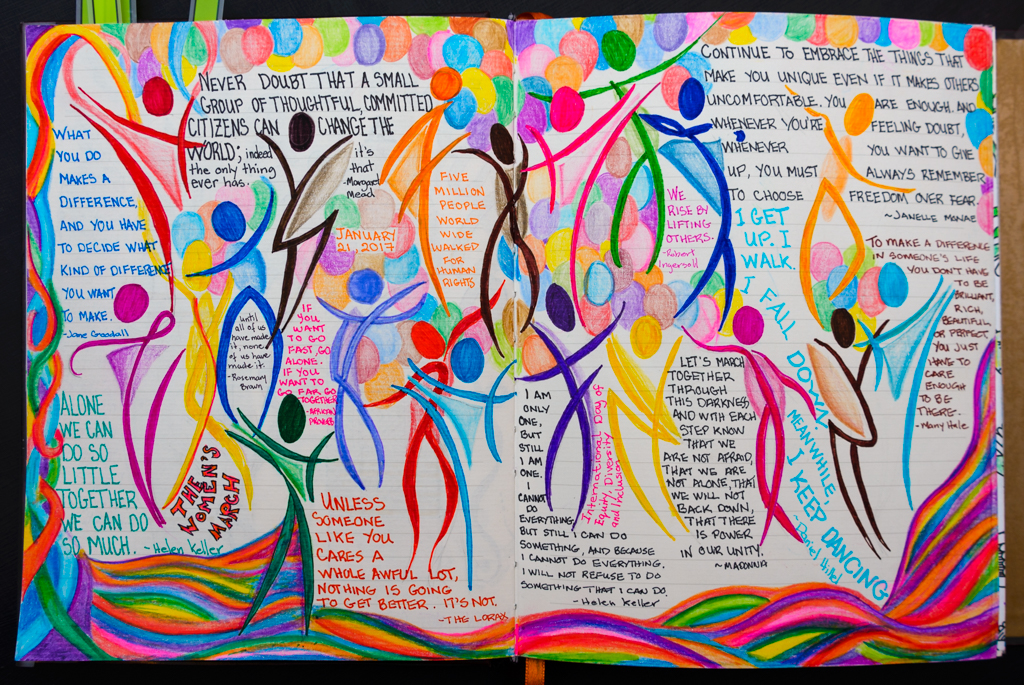 NEVER DOUBT THAT A SMALL
GROUP OF THOUGHTFUL, COMMITTED
CITIZENS CAN CHANGE THE
WORLD; indeed it's
the only thing that
ever has. -Margaret
Mead
WHAT
YOU DO
MAKES A
DIFFERENCE,
AND YOU HAVE
TO DECIDE WHAT
KIND OF DIFFERENCE
YOU WANT
TO MAKE.
-Jane Goodall
FIVE
MILLION
PEOPLE
WORLD
WIDE
WALKED
FOR
HUMAN
RIGHTS
JANUARY
21, 2017
until
all of us
have made
it, none
of us have
made it.
-Rosemary
Brown
IF
YOU
WANT
TO GO
FAST, GO
ALONE.
IF YOU
WANT TO
GO FAR GO
TOGETHER
-AFRICAN
PROVERB
ALONE
WE CAN
DO SO
LITTLE
TOGETHER
WE CAN DO
SO MUCH. -Helen Keller
THE
WOMEN'S
MARCH
UNLESS
SOMEONE
LIKE YOU
CARES A
WHOLE AWFUL LOT,
NOTHING IS GOING
TO GET BETTER. IT'S NOT.
-THE LORAX
CONTINUE TO EMBRACE THE THINGS THAT
MAKE YOU UNIQUE EVEN IF IT MAKES OTHERS
UNCOMFORTABLE. YOU ARE ENOUGH. AND
WHENEVER YOU'RE FEELING DOUBT,
WHENEVER YOU WANT TO GIVE
UP, YOU MUST ALWAYS REMEMBER
TO CHOOSE FREEDOM OVER FEAR.
~JANELLE MONAE
WE
RISE BY
LIFTING
OTHERS.
-Robert
Ingersoll
I GET
UP. I
WALK.
I FALL
DOWN
MEANWHILE,
I KEEP DANCING
-Daniel Hillel
TO MAKE A DIFFERENCE
IN SOMEONE'S LIFE
YOU DON'T HAVE
TO BE
BRILLIANT,
RICH,
BEAUTIFUL,
OR PERFECT.
YOU JUST
HAVE TO
CARE
ENOUGH
TO BE
THERE.
-Mandy Hale
LET'S MARCH
TOGETHER
THROUGH
THIS DARKNESS
AND WITH EACH
STEP KNOW
THAT WE
ARE NOT AFRAID,
THAT WE ARE
NOT ALONE, THAT
WE WILL NOT
BACK DOWN,
THAT THERE
IS POWER
IN OUR UNITY.
~MADONNA
I AM
ONLY
ONE,
BUT
STILL
I AM
ONE.
I
CANNOT
DO
EVERYTHING,
BUT STILL I CAN DO
SOMETHING, AND BECAUSE
I CANNOT DO EVERYTHING.
I WILL NOT REFUSE TO DO
SOMETHING THAT I CAN DO.
-Helen Keller
International Day of
Equity, Diversity
and Inclusion